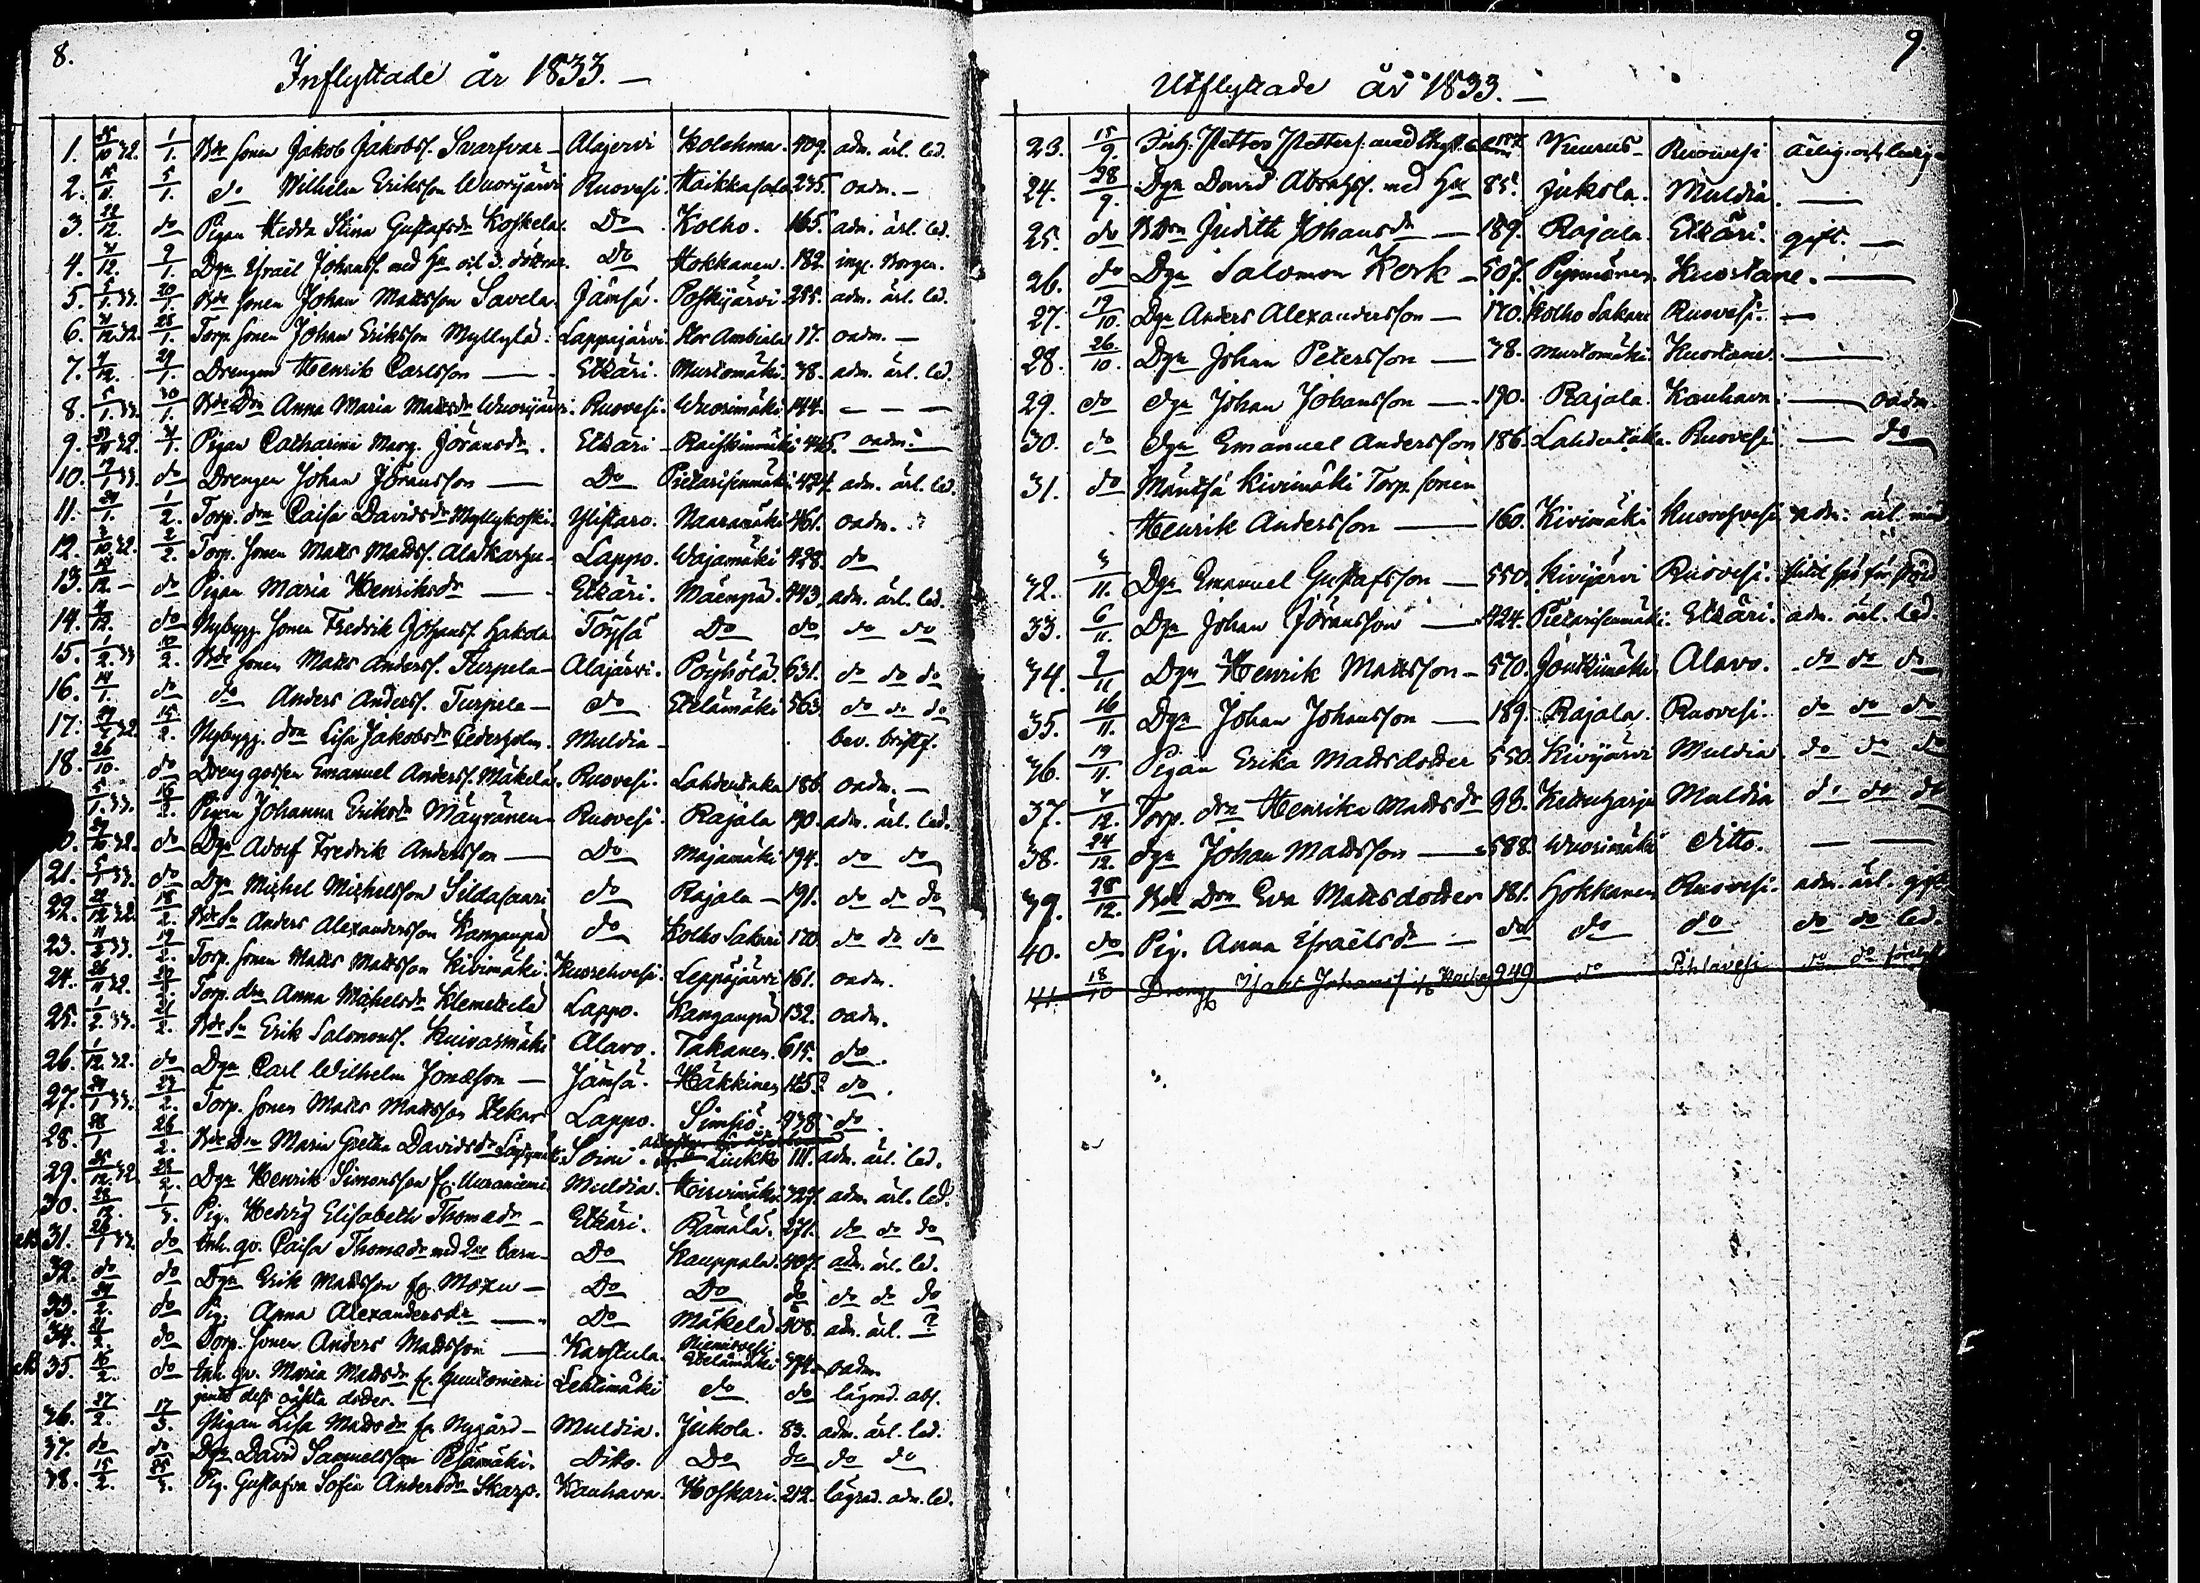 8.
Inflyttade år 1833. —
1. 25/10 32. 1/1. Bde sonen Jakob Jakobss. Svarfvar — Alajervi Kolehma. 409. adm. ärl. led.
2. 15/11. 5/1. do Wilhelm Eriksson Wuorijärvi Ruovesi. Haikkasalo 235. oadm. —
3. 22/12. do Pigan Hedda Stina Gustafsdr Koskela. Do Kolho. 165. adm. ärl. led.
4. 31/12. 9/1. Dgn Israel Johanss. med Hu och 3. döttrar. Do Hokkanen. 182. ing. Borgen.
5. 5/1. 33. 20/1. Bde sonen Johan Mattsson Savela. Jämsä. Poskijärvi. 255. adm. ärl. led.
6. 31/12 32. 25/1. Torp. sonen Johan Eriksson Myllylä. Lappajärvi. Stor Ambiala 17. oadm. —
7. 9/12. 29/1. Drengen Henrik Carlsson — Etzäri. Murtomäki. 38. adm. ärl. led.
8. 5/1. 33. 30/1. Bde Dr Anna Maria Mattsdr Wuorijärvi. Ruovesi. Wuorimäki. 144. — — —
9. 32. 31/1. Pigan Catharina Marg. Jöransdr. Etzäri — Raiskinmäki 445. oadm. —
10. 19/1 33. do Drengen Johan Jöransson — Do Pietarisenmäki. 424. adm. ärl. led.
11. 29/1. 1/2. Torp. dr Caisa Davidsdr Myllykoski. Ylistaro. Naaramäki 461. oadm.
12. 32. 2/2. Torp. sonen Matts Mattss. Alatkarhu — Lappo. Wajamäki 428. do
13. 19/12. — do Pigan Maria Henriksdr — Etzäri. Mäenpä. 443. adm. ärl. led.
14. 9/12. do Nybygg. sonen Fredrik Johanss. Hakola Töysä Do do do do
15. 1/2. 33 12/2. Bde sonen Matts Anderss. Turpela — Alajärvi. Pöyhölä. 631. do do do
16. 14/1. do do Anders Anderss. Turpela — do Etelämäki 563. do do do
17. 32. 15/2. Nybygg. dr Lisa Jakobsdr Cederholm. Muldia — bev. bristf.
18. 26/10. do Dreng gossen Emanuel Anderss. Mäkelä. Ruovesi. Lahdentaka 186. oadm. —
5/1. 33. 16/2. Pigan Johanna Eriksdr Mäyränen — Ruovesi. Rajala 190. adm. ärl. led.
0. 32. do Dgn Adolf Fredrik Andersson — Do Majamäki 194. do do
21. 5/1 33. do Dgn Michel Michelsson Sildasaari do Rajala — 191. do do do
22. 32. 18/2. Bde Sn Anders Alexandersson Kangaspä do Kolho Sakari 170. do do do
23. 11/2 33. 19/2. Torp. sonen Matts Mattsson Kivimäki. Kuorehvesi. Leppäjärvi 161. oadm.
24. 26/11 32. Torp. dr Anna Michelsdr Klemettilä Lappo. Kangaspä 132. oadm.
25. 1/2. 33. 21/2. Bde Sn Erik Salomonss. Kuivasmäki Alavo. Takanen. 615. do.
26. 1/12. 32. do Dgn Carl Wilhelm Jonæson — Jämsä. Häkkinen 45. do.
27. 29/1 33. 24/2. Torp. sonen Matts Mattsson Stekar Lappo. Simsiö. 438. do.
28. 28/1 26/2. Bde Dr Maria Greta Davidsdr Soini. Liukko 111. adm. ärl. led.
29. 25/12. 32. 28/2. Dgn Henrik Simonsson fr. Uuraniemi Muldia. Hirvimäki. 727. adm. ärl. led.
30. 28/12. 1/3. Pig. Hedvig Elisabeth Thomædr — Etzäri. Rämälä. 271. do do do
31. 26/1 33. do Inh. qv. Caisa Thomædr med 2ne barn — Do Kauppala. 407. adm. ärl. led.
32. do do Dgn Erik Mattsson fr. Moxu — Do Do do do do do
33. 24/2. do Pig. Anna Alexandersdr — Do Mäkelä. 408. adm. ärl. ?
34. 21/2. do Torp. sonen Anders Mattsson — Karstula. Niemisvesi Etelämäki 374. oadm.
35. 15/2. do Inh. qv. Maria Mattsdr fr. Huutoniemi Lehtimäki do do lägrad. abs.
jemte dess oäkta dotter. —
36. 27/2. 17/3. Pigan Lisa Mattsdr fr. Nygård — Muldia. Jukola. 83. adm. ärl. led.
37. do do Dgn David Samuelsson Pesämäki. Ditto. Do do do do
38. 15/2. 25/3. Pig. Gustafva Sofia Andersdr Skarp. Kauhava. Hoskari. 212. lägrad. adm. led.
9.
Utflyttade år 1833. —
23. 15/9. Inh. Petter Petterss. med Ruovesi ärlig. och ledig
24. 28/9. Dgn David Abrahss. med Hu 85. Jukola. Muldia. —
25. do BDrn Judith Johansdr — 189. Rajala. Etzäri. gift. —
26. do Dgn Salomon Kork — 507. Pynnönen. Kuortane. —
27. 19/10. Dgn Anders Alexandersson — 170. Kolho Sakari Ruovesi. —
28. 26/10. Dgn Johan Petersson — 38. Murtomäki. Kuortane. —
29. do Dgn Johan Johansson — 190. Rajala. Kauhava. — oadm.
30. do Dgn Emanuel Andersson 186. Lahdentaka. Ruovesi — do
31. do Mäntsä Kivimäki Torp. sonen
Henrik Andersson — 160. Kivimäki Kuorehvesi adm. ärl. med
32. 3/11. Dgn Emanuel Gustafsson — 550. Kivijärvi Ruovesi.
33. 6/11. Dgn Johan Jöransson — 424. Pietarisenmäki. Etzäri. adm. ärl. led.
34. 9/11 Dgn Henrik Mattsson — 570. Joutsimäki Alavo. do do do
35. 16/11. Dgn Johan Johansson — 189. Rajala. Ruovesi. do do do
36. 19/11. Pigan Erika Mattsdotter 550. Kivijärvi Muldia do do do
37. 7/12. Torp. drn Henrika Mattsdr 98. Kettuharju Muldia do do do
38. 24/12. Dgn Johan Mattsson — 588. Wuorimäki ditto. — —
39. 28/12. Bde Drn Eva Mattsdotter 181. Hokkanen Ruovesi. adm. ärl. gift
40. do Pig. Anna Israelsdr — do do do do do led.
41. 18/10 Dreng Isak Johanss. 949 do Pihlavesi do do